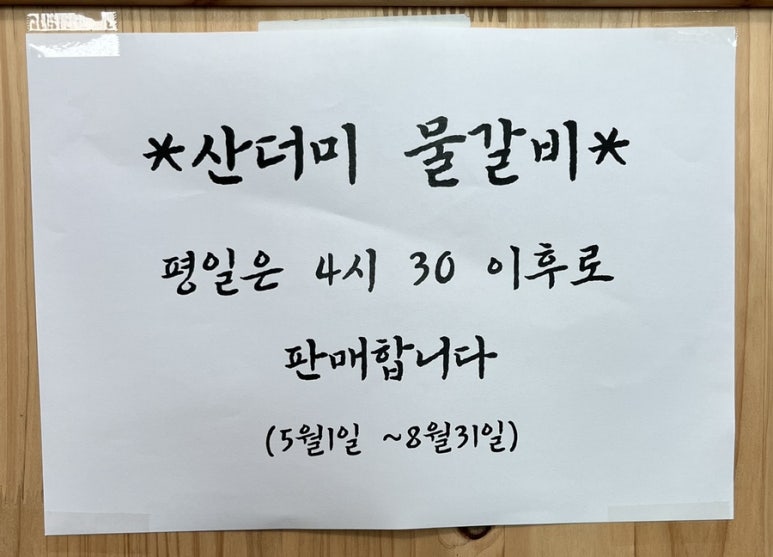 *산더미 물갈비*
평일은 4시 30 이후로
판매합니다
(5월1일 ~8월31일)